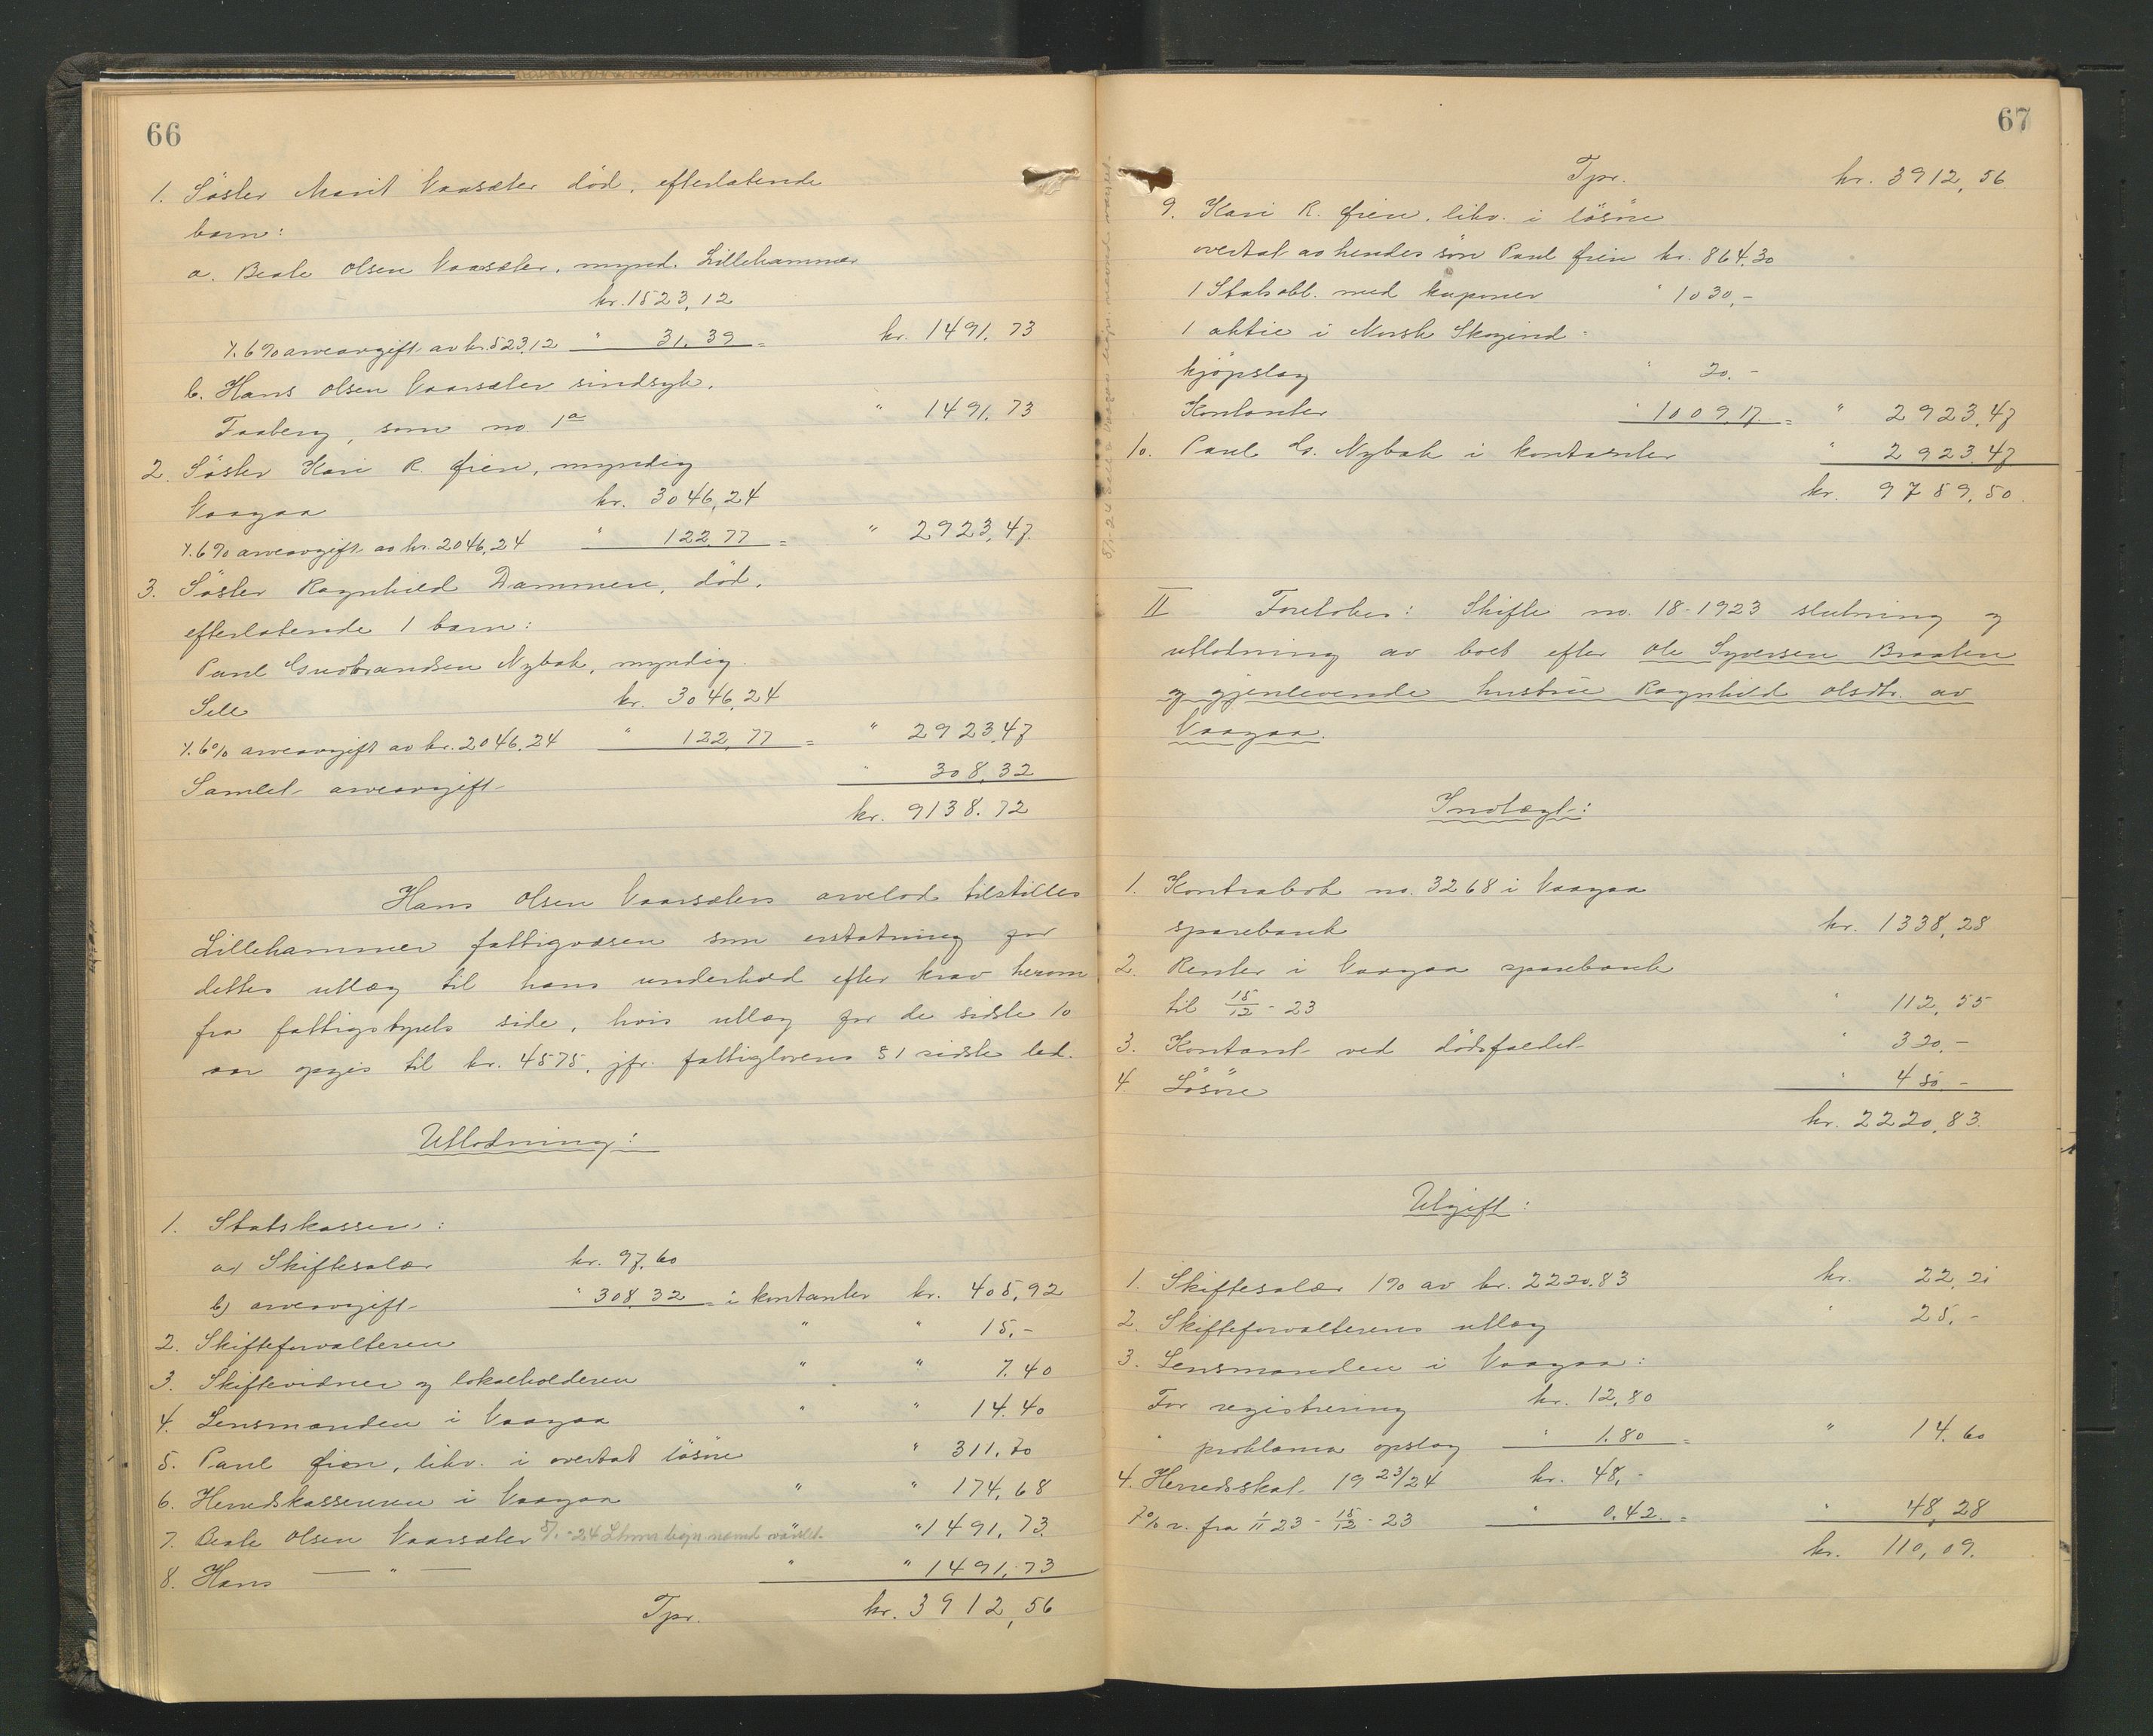 66
1. Söster Marit Vaarsæter död, efterlatende
barn:
a. Beate Olsen Vaarsæter, mynd. Lillehammer
kr. 1523,12
÷ 6% arveavgift av kr. 523,12 " 31,39 = kr. 1491,73
b. Hans Olsen Vaarsæter sindsyk,
Faaberg, som no. 1a " 1491,73
2. Söster Kari R. Öien, myndig
Vaagaa kr. 3046,24
÷ 6% arveavgift av kr. 2046,24 " 122,77 = " 2923,47
3. Söster Ragnhild Dammen, död,
efterlatende 1 barn:
Paul Gudbrandsen Nybak, myndig
Sell kr. 3046,24
÷ 6% arveavgift av kr. 2046,24 " 122,77 = " 2923,47
Samlet arveavgift " 308,32
kr. 9138.72
Hans Olsen Vaarsæters arvelod tilstilles
Lillehammer fattigvæsen som erstatning for
dettes utlæg til hans underhold efter krav herom
fra fattigstyrets side, hvis utlæg for de sidste 10
aar opgis til kr. 4575, jfr. fattiglovens § 1 sidste led.
Utlodning:
1. Statskassen:
a) Skiftesalær kr. 97,60
b) arveavgift " 308,32 = i kontanter kr. 405,92
2. Skifteforvalteren " " 15,-
3. Skiftevidner og lokalholderen " " 7.40
4. Lensmanden i Vaagaa " " 14.40
5. Paul Öien, likv. i overtat lösöre " 311,70
6. Herredskassereren i Vaagaa " " 174,68
7. Beate Olsen Vaarsæter 5/1-24 Lhmr lign.nemd varslet " 1491,73
8. Hans — " — " " 1491,73
Tpr. kr. 3912,56
67
Tpr. kr. 3912,56
9. Kari R. Öien, likv. i lösöre
overtat av hendes sön Paul Öien kr. 864.30
1 Statsobl. med kuponer " 1030,-
1 aktie i Norsk Skogeind=
kjöpslag " 20.-
Kontanter " 1009,17 = " 2923,47
10. Paul G. Nybak i kontanter " 2923,47
kr. 9759,50.
II Foretokes: Skifte no. 18-1923 slutning og
utlodning av boet efter Ole Syversen Braaten
og gjenlevende hustru Ragnhild Olsdtr. av
Vaagaa.
Indtægt:
1. Kontrabok no. 3268 i Vaagaa
sparebank kr. 1338,28
2. Renter i Vaagaa sparebank
til 15/12-23 " 112,55
3. Kontant ved dödsfaldet " 320,-
4 Lösöre " 450,-
kr. 2220,83.
Utgift:
1. Skiftesalær 1% av kr. 2220.83 kr. 22,21
2. Skifteforvalterens utlæg " 25,-
3. Lensmanden i Vaagaa:
For registrering kr. 12,80
" proklama opslag " 1.80 = " 14.60
4. Herredsskat 1923/24 kr. 48,-
7% r. fra 1/11 23 - 15/12-23 " 0,42 = " 48,28
kr. 110,09.